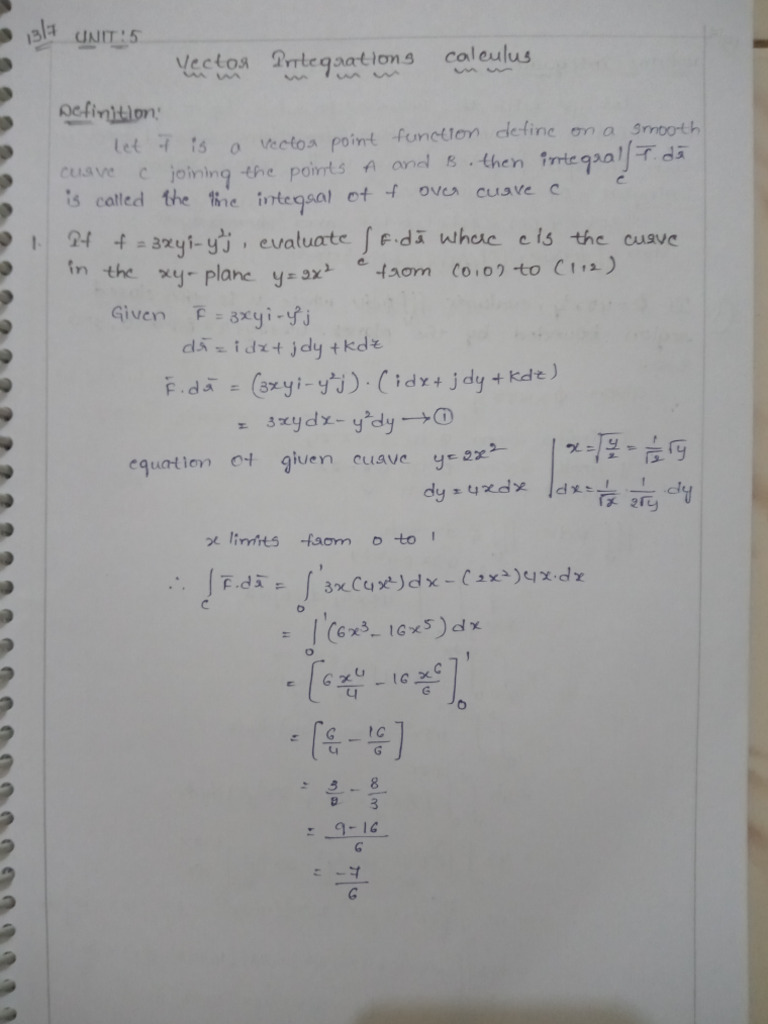 13/7 UNIT:5
Vector Integrations calculus
Definition:
Let F̄ is a vector point function define on a smooth
curve c joining the points A and B. then integral ∫_c F̄.dr̄
is called the line integral of f over curve c
1. If f = 3xyi-y²j, evaluate ∫_c F.dr̄ where c is the curve
in the xy-plane y=2x² from (0,0) to (1,2)
Given F̄ = 3xyi-y²j
dr̄ = idx+jdy+kdz
F̄.dr̄ = (3xyi-y²j).(idx+jdy+kdz)
= 3xydx-y²dy → ①
equation of given curve y=2x² | x=√(y/2) = 1/√2 √y
dy=4xdx | dx=1/√2 . 1/2√y dy
x limits from 0 to 1
∴ ∫_c F̄.dr̄ = ∫_0^1 3x(4x²)dx-(2x²)4x.dx
= ∫_0^1 (6x³-16x⁵)dx
= [6 x⁴/4 - 16 x⁶/6]_0^1
= [6/4 - 16/6]
= 3/2 - 8/3
= 9-16/6
= -7/6